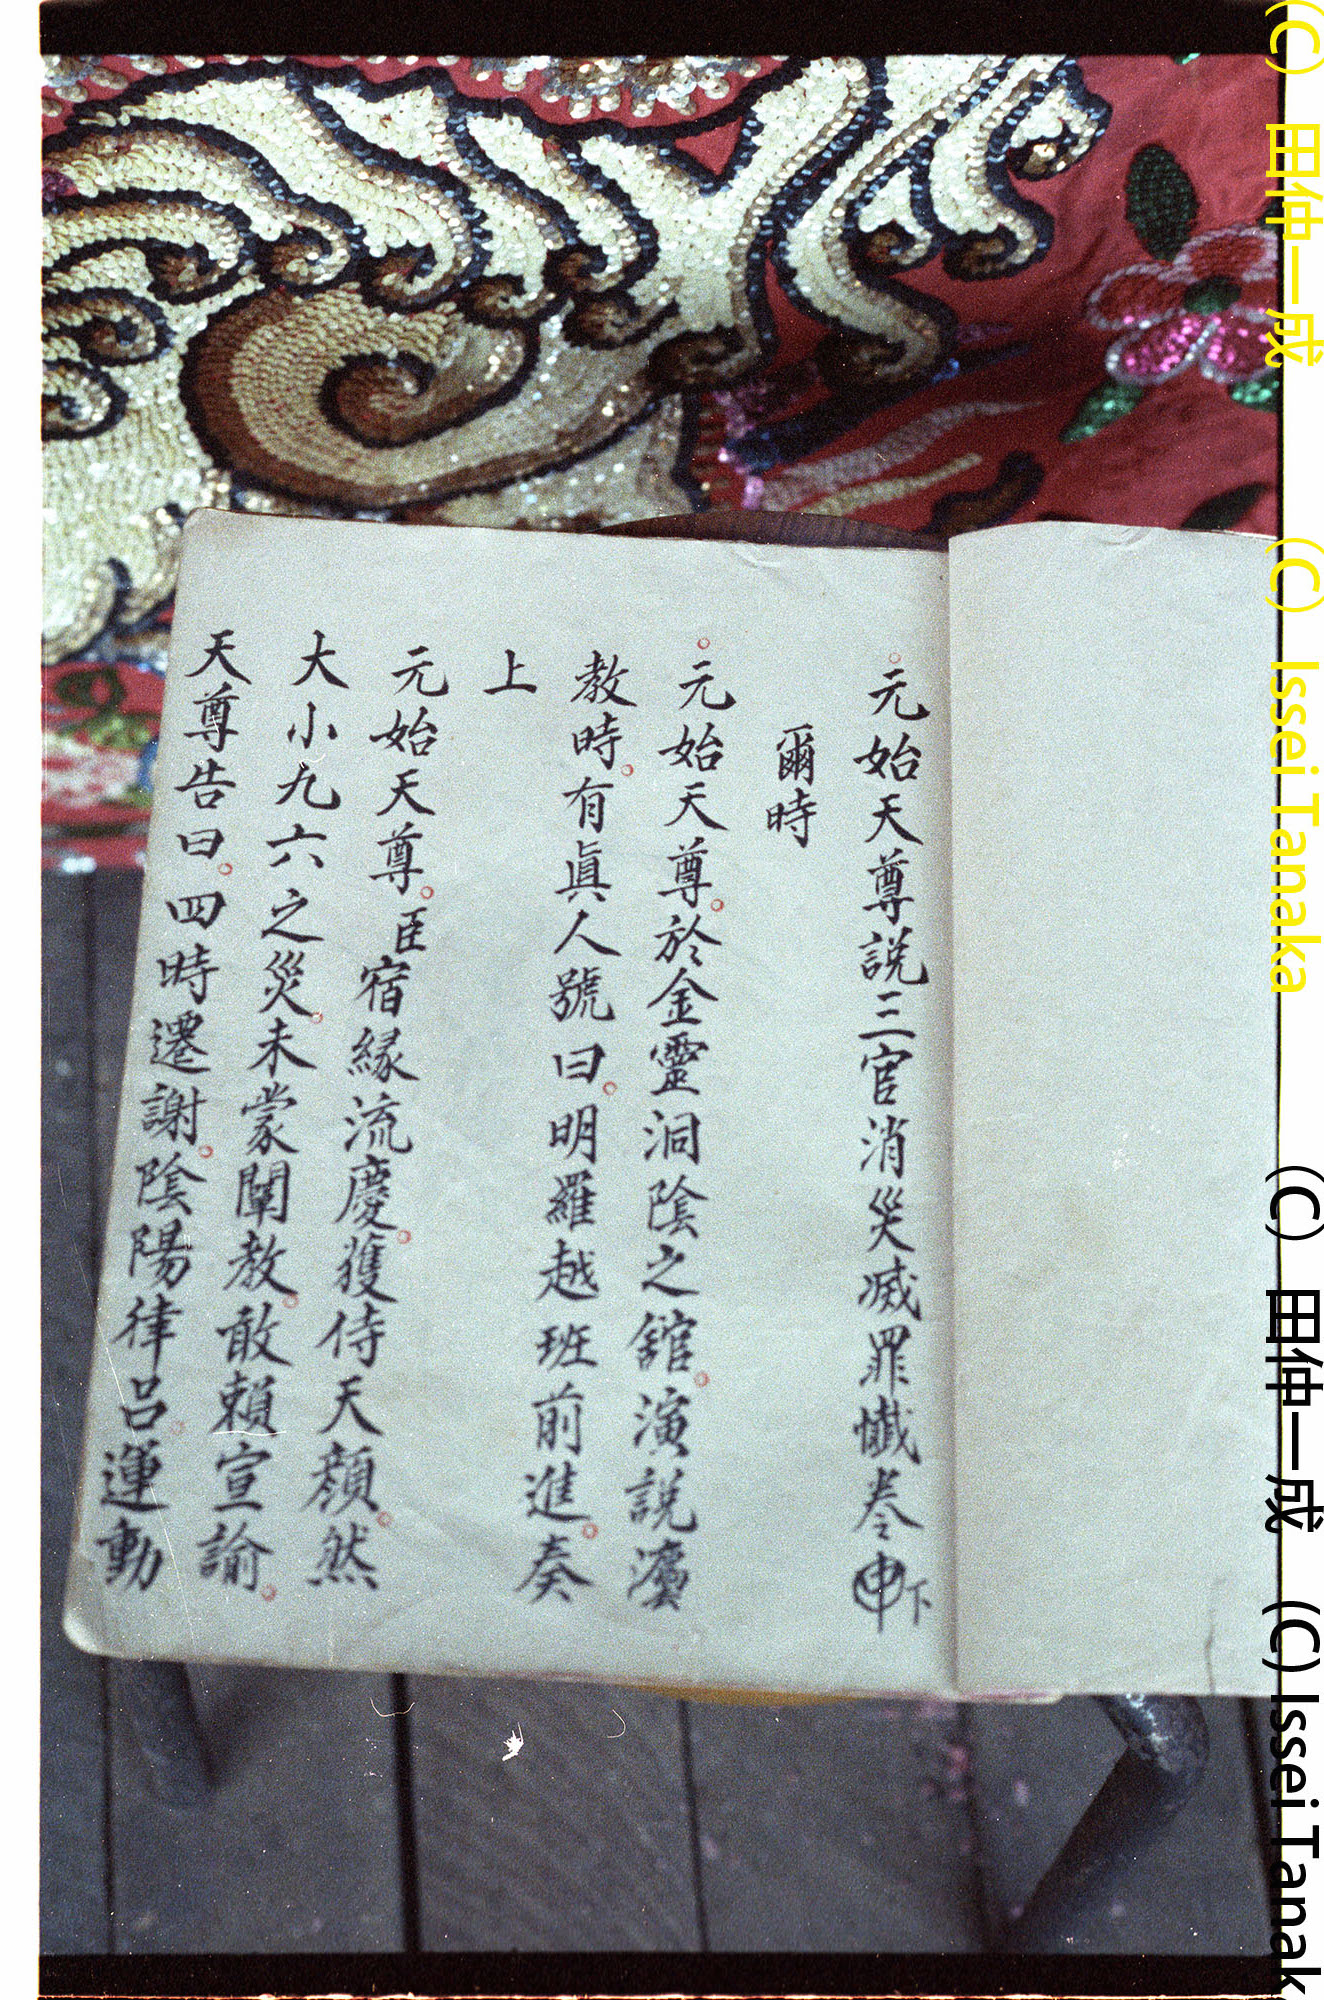 元始天尊説三官消災滅罪懺卷㊥下
爾時
元始天尊於金靈洞陰之舘演説濵
教時有眞人號曰明羅越班前進奏
上
元始天尊臣宿縁流慶獲侍天顔然
大小九六之災未蒙闡教敢賴宣諭
天尊告曰四時遷謝陰陽律呂運動
(C) 田仲一成 (C) Issei Tanaka
(C) 田仲一成 (C) Issei Tanak